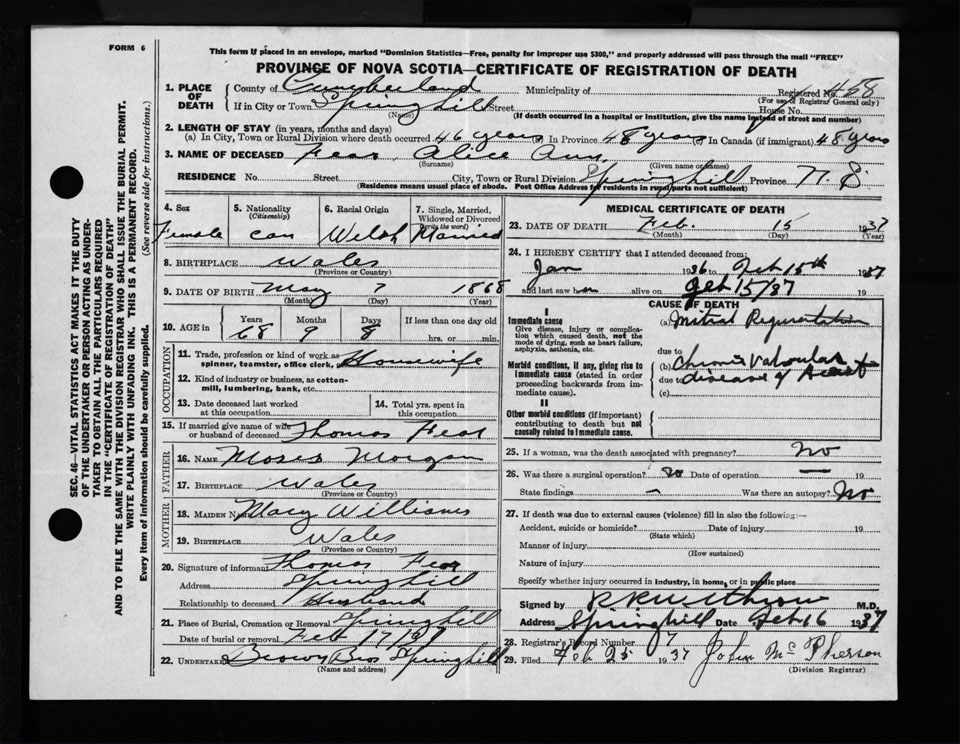 FORM 6
This form if placed in an envelope, marked "Dominion Statistics—Free, penalty for improper use $300," and properly addressed will pass through the mail "FREE"
PROVINCE OF NOVA SCOTIA—CERTIFICATE OF REGISTRATION OF DEATH
SEC. 46—VITAL STATISTICS ACT MAKES IT THE DUTY
OF THE UNDERTAKER OR PERSON ACTING AS UNDER-
TAKER TO OBTAIN ALL THE PARTICULARS REQUIRED
IN THE "CERTIFICATE OF REGISTRATION OF DEATH"
AND TO FILE THE SAME WITH THE DIVISION REGISTRAR WHO SHALL ISSUE THE BURIAL PERMIT.
WRITE PLAINLY WITH UNFADING INK. THIS IS A PERMANENT RECORD.
Every item of information should be carefully supplied. (See reverse side for instructions.)
1. PLACE OF DEATH
County of Cumberland Municipality of Registered No. 458
(For use of Registrar General only)
If in City or Town Springhill Street House No.
(Name) (If death occurred in a hospital or institution, give the name instead of street and number)
2. LENGTH OF STAY (in years, months and days)
(a) In City, Town or Rural Division where death occurred 46 years In Province 48 years In Canada (if immigrant) 48 years
3. NAME OF DECEASED Fear, Alice Ann
(Surname) (Given name or names)
RESIDENCE No. Street City, Town or Rural Division Springhill Province N. S
(Residence means usual place of abode. Post Office Address for residents in rural parts not sufficient)
4. Sex Female
5. Nationality (Citizenship) Can
6. Racial Origin Welsh
7. Single, Married, Widowed or Divorced (write the word) Married
8. BIRTHPLACE Wales
(Province or Country)
9. DATE OF BIRTH May 7 1868
(Month) (Day) (Year)
10. AGE in Years 68 Months 9 Days 8 If less than one day old hrs. or min.
OCCUPATION
11. Trade, profession or kind of work as spinner, teamster, office clerk, Housewife
12. Kind of industry or business, as cotton-mill, lumbering, bank, etc.
13. Date deceased last worked at this occupation
14. Total yrs. spent in this occupation
15. If married give name of wife or husband of deceased Thomas Fear
FATHER
16. NAME Moses Morgan
17. BIRTHPLACE Wales
(Province or Country)
MOTHER
18. MAIDEN NAME Mary Williams
19. BIRTHPLACE Wales
(Province or Country)
20. Signature of informant Thomas Fear
Address Springhill
Relationship to deceased Husband
21. Place of Burial, Cremation or Removal Springhill
Date of burial or removal Feb 17/37
22. UNDERTAKER Brown Bros Springhill
(Name and address)
MEDICAL CERTIFICATE OF DEATH
23. DATE OF DEATH Feb. 15 1937
(Month) (Day) (Year)
24. I HEREBY CERTIFY that I attended deceased from:
Jan 1936 to Feb 15th 1937
and last saw her alive on Feb 15/37 19
CAUSE OF DEATH
I
Immediate cause
Give disease, injury or complication which caused death, not the mode of dying, such as heart failure, asphyxia, asthenia, etc.
(a) Mitral Regurgitation
due to
Morbid conditions, if any, giving rise to immediate cause (stated in order proceeding backwards from immediate cause).
(b) Chronic Valvular
due to disease of Heart
(c)
II
Other morbid conditions (if important) contributing to death but not causally related to immediate cause.
25. If a woman, was the death associated with pregnancy? No
26. Was there a surgical operation? No Date of operation — 19
State findings — Was there an autopsy? No
27. If death was due to external causes (violence) fill in also the following:—
Accident, suicide or homicide? Date of injury 19
(State which)
Manner of injury
(How sustained)
Nature of injury
Specify whether injury occurred in industry, in home, or in public place
Signed by M.D.
Address Springhill Date Feb 16 1937
28. Registrar's Record Number 7
29. Filed Feb 25 1937 John McPherson
(Division Registrar)